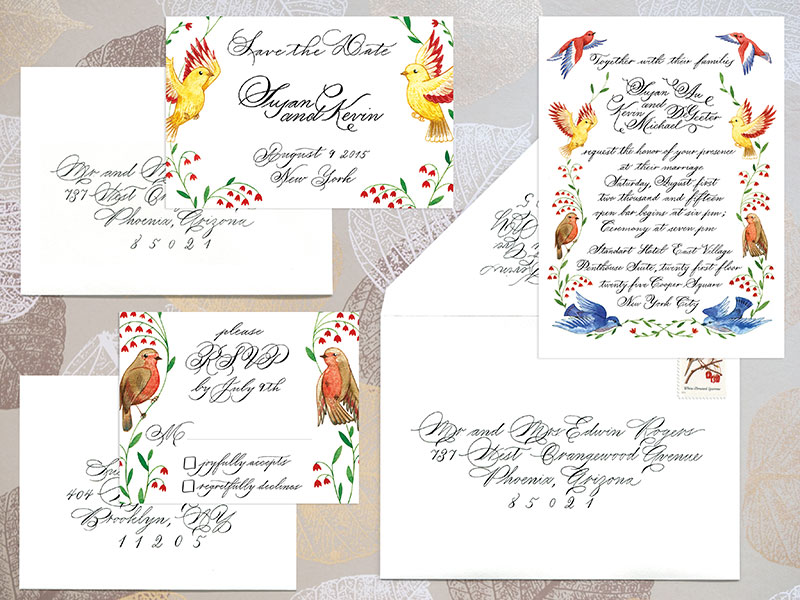 Save the Date
Susan
and Kevin
August 9 2015
New York
Mr and M
737 West O
Phoenix, Arizona
85021
Together with their families
Susan Yu
and
Kevin DGeeter
Michael
request the honor of your presence
at their marriage
Saturday, August first
two thousand and fifteen
open bar begins at six pm;
Ceremony at seven pm
Standart Hotel East Village
Penthouse Suite, twenty first floor
twenty five Cooper Square
New York City
please
RSVP
by July 9th
M
joyfully accepts
regretfully declines
404
Brooklyn, NY
11205
Mr and Mrs Edwin Rogers
737 West Orangewood Avenue
Phoenix, Arizona
85021